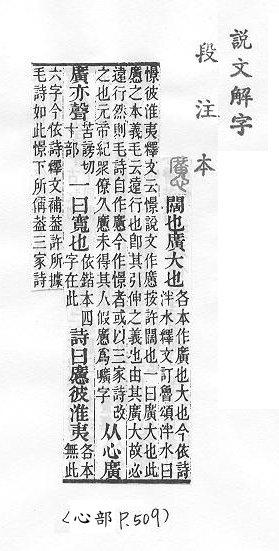 說文解字
段注本
懬 闊也廣大也
各本作廣也大也今依詩
泮水釋文訂魯頌泮水曰
憬彼淮夷釋文云憬說文作懬按許闊也一曰廣大也此
懬之本義毛云遠行也卽其引伸之義也由其廣大故必
遠行然則毛詩自作懬今作憬者或以三家詩改
之也元帝紀眾僚久懬未得其人假懬爲曠字
从心廣
廣亦聲
苦謗切
十部
一曰寬也
依鍇本四
字在此
詩曰懬彼淮夷
各本
無此
六字今依詩釋文補葢許所據
毛詩如此憬下所偁葢三家詩
〈心部 P.509〉